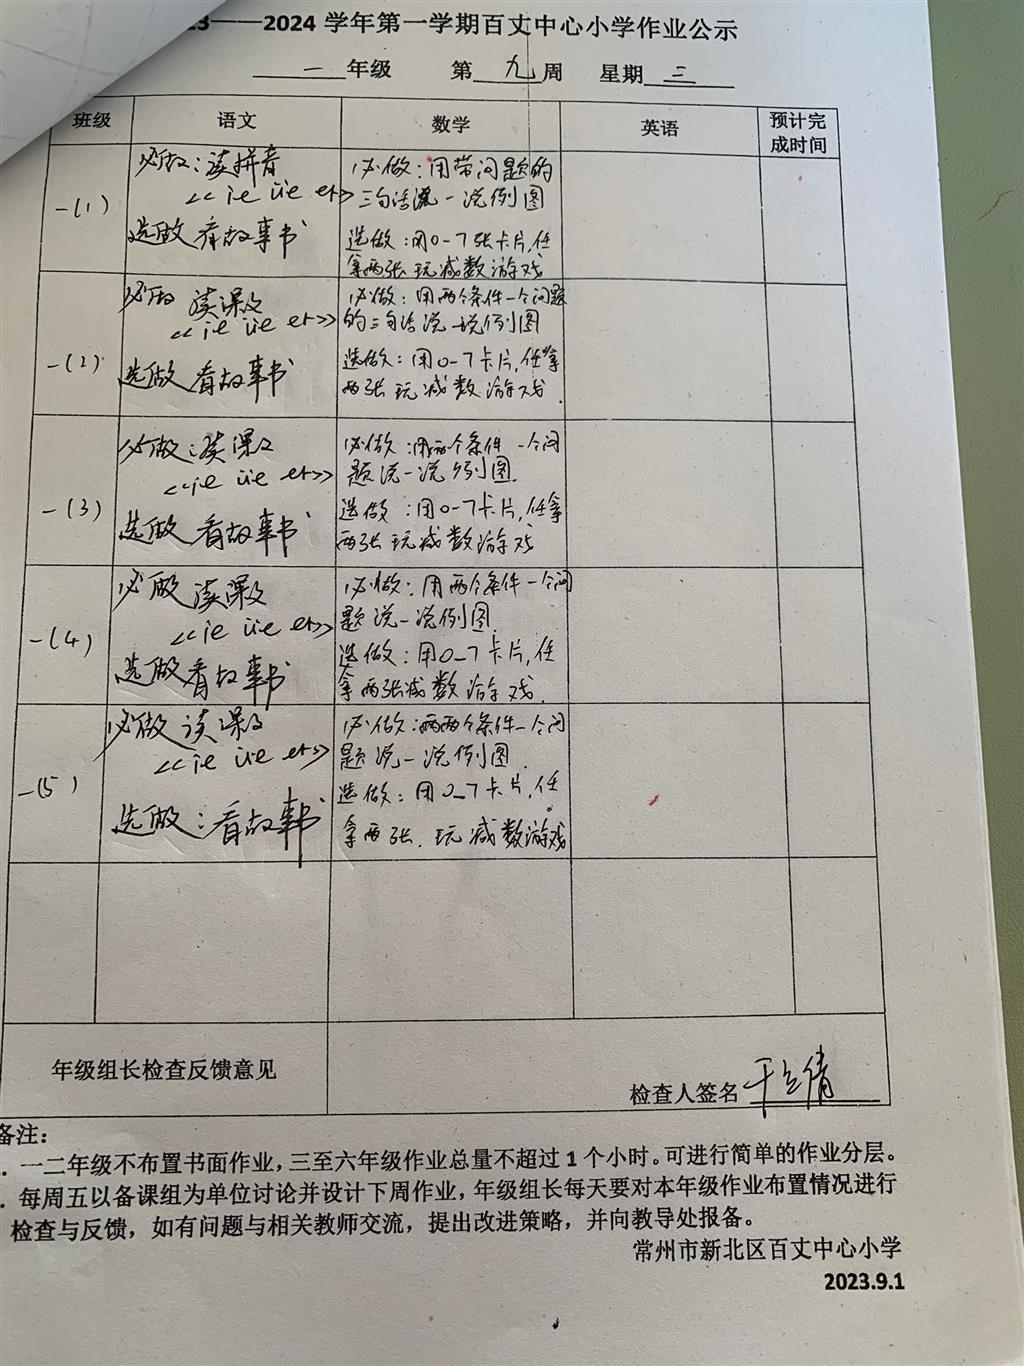 23——2024 学年第一学期百丈中心小学作业公示
一 年级 第 九 周 星期 三
班级 语文 数学 英语 预计完成时间
一(1)
必做：读拼音
<<ie üe er>>
选做 看故事书
必做：用带问题的
三句话说一说例图
选做：用0-7张卡片,任
拿两张玩减数游戏
一(2)
必做 读课文
<<ie üe er>>
选做 看故事书
必做：用两个条件一个问题
的三句话说一说例图
选做：用0-7卡片,任拿
两张玩减数游戏.
一(3)
必做：读课文
<<ie üe er>>
选做 看故事书
必做：用两个条件一个问
题说一说例图.
选做：用0-7卡片,任拿
两张玩减数游戏
一(4)
必做 读课文
<<ie üe er>>
选做 看故事书
必做：用两个条件一个问
题说一说例图.
选做：用0-7卡片,任
拿两张减数游戏.
一(5)
必做 读课文
<<ie üe er>>
选做：看故事书
必做：两个条件一个问
题说一说例图.
选做：用0-7卡片,任
拿两张.玩减数游戏
年级组长检查反馈意见
检查人签名
备注：
. 一二年级不布置书面作业，三至六年级作业总量不超过 1 个小时。可进行简单的作业分层。
. 每周五以备课组为单位讨论并设计下周作业，年级组长每天要对本年级作业布置情况进行
检查与反馈，如有问题与相关教师交流，提出改进策略，并向教导处报备。
常州市新北区百丈中心小学
2023.9.1